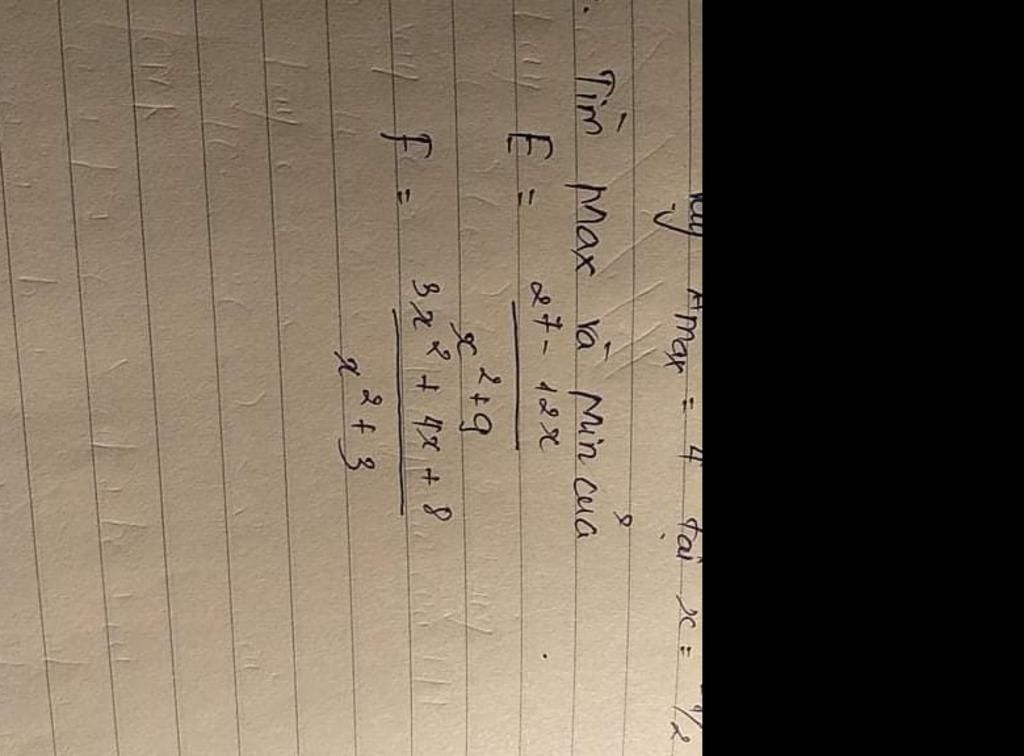 Amax = 4 tại x =
Tìm Max và Min của
E = 27 - 12x / x² + 9
F = 3x² + 4x + 8 / x² + 3